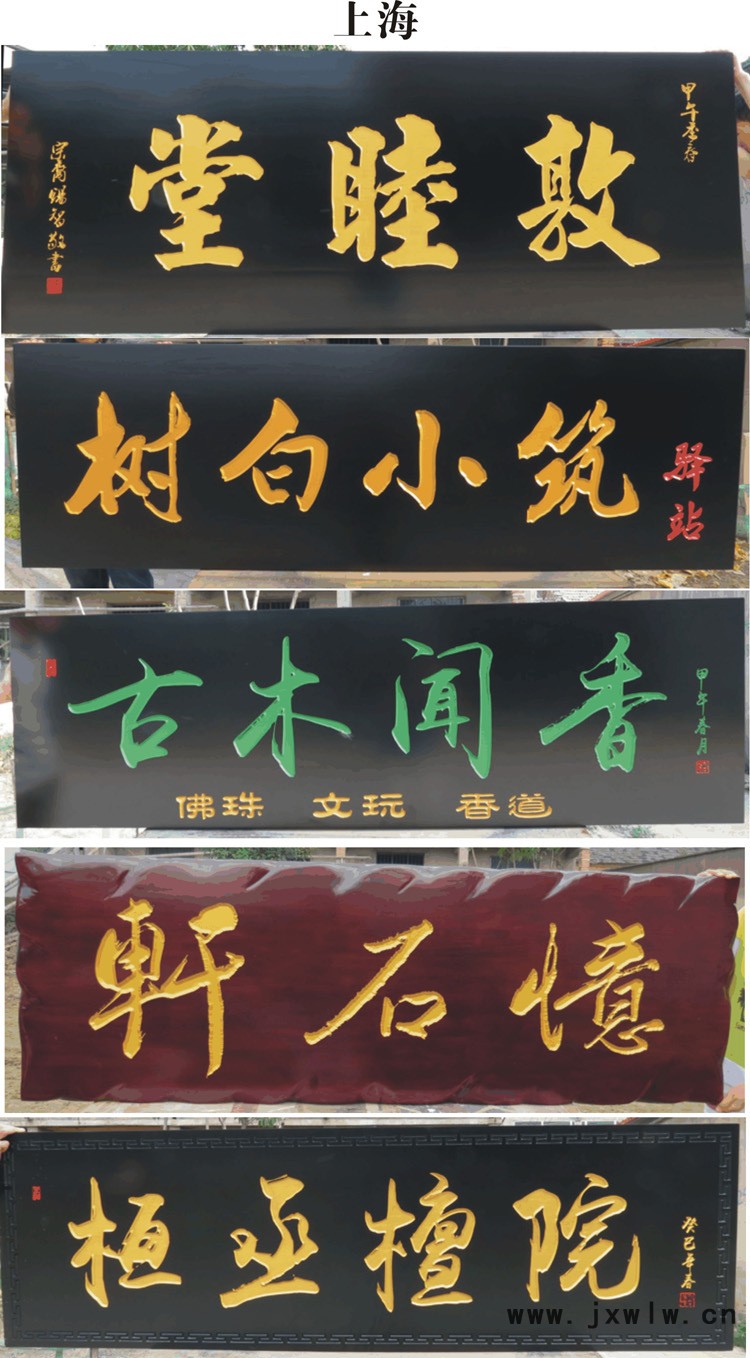 上海
甲午季春
敦睦堂
树白小筑
驿站
古木闻香
甲午春月
佛珠 文玩 香道
憶石軒
桓丞檀院
癸巳年春
www.jxwlw.cn